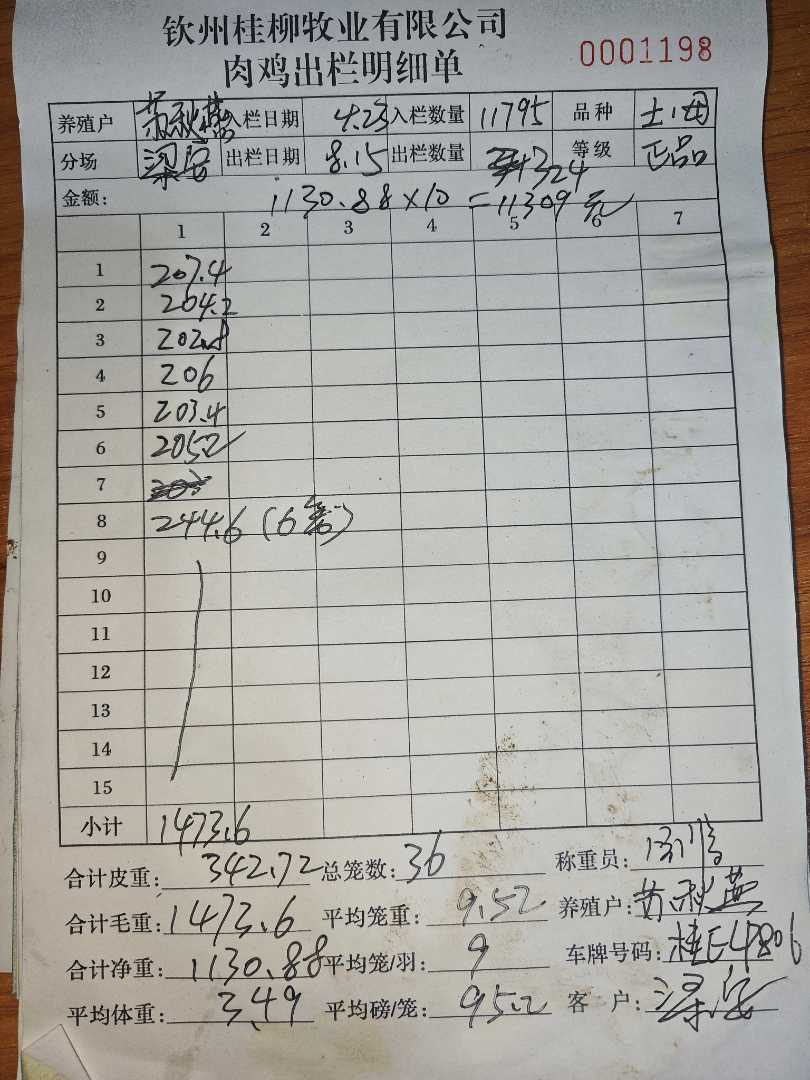 钦州桂柳牧业有限公司
肉鸡出栏明细单 0001198
养殖户 苏秋燕 入栏日期 4.23 入栏数量 11795 品种 土1母
分场 梁宏 出栏日期 8.15 出栏数量 324 等级 正品
金额: 1130.88×10=11309元
1 2 3 4 5 6 7
1 207.4
2 204.2
3 202.8
4 206
5 203.4
6 205.2
7
8 244.6 (6笼)
9
10
11
12
13
14
15
小计 1473.6
合计皮重: 342.72 总笼数: 36 称重员:
合计毛重: 1473.6 平均笼重: 9.52 养殖户: 苏秋燕
合计净重: 1130.88 平均笼/羽: 9 车牌号码: 桂E4P806
平均体重: 3.49 平均磅/笼: 95.2 客 户: 梁宏